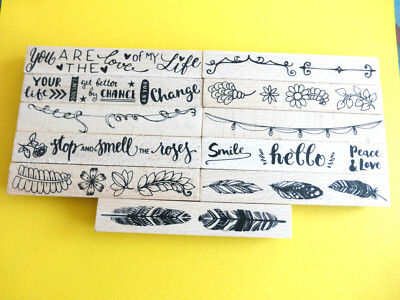 You ARE THE Love OF MY Life
YOUR life get better by CHANCE Change
stop AND smell THE roses
Smile hello Peace & Love